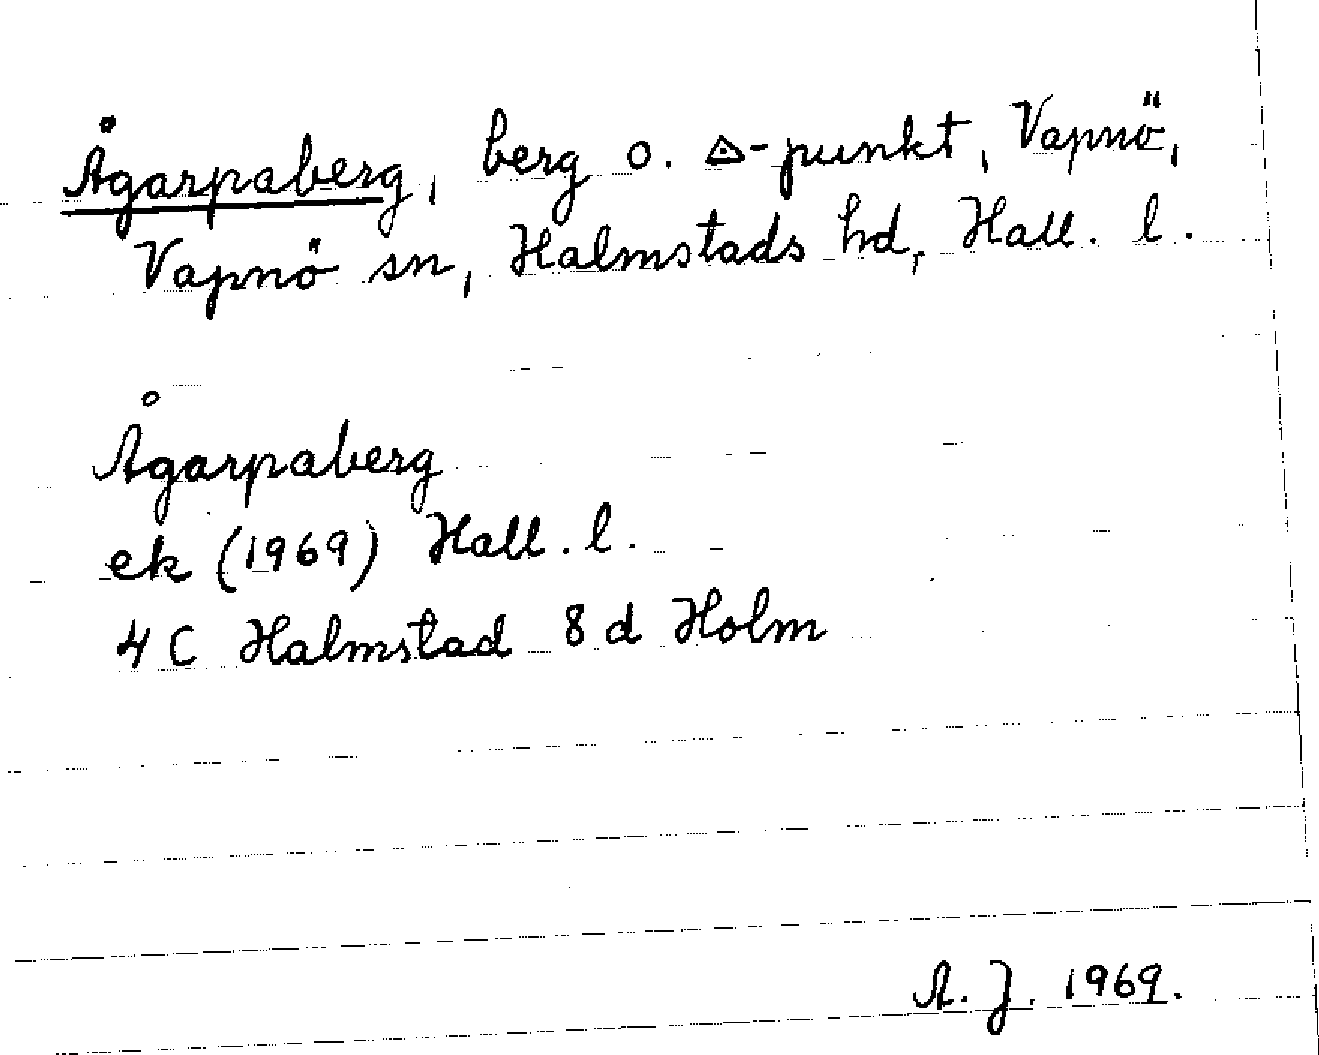 Ågarpaberg, berg o. ◬-punkt, Vapnö,
Vapnö sn, Halmstads hd, Hall. l.
Ågarpaberg
ek (1969) Hall. l.
4 C Halmstad 8 d Holm
A. J. 1969.